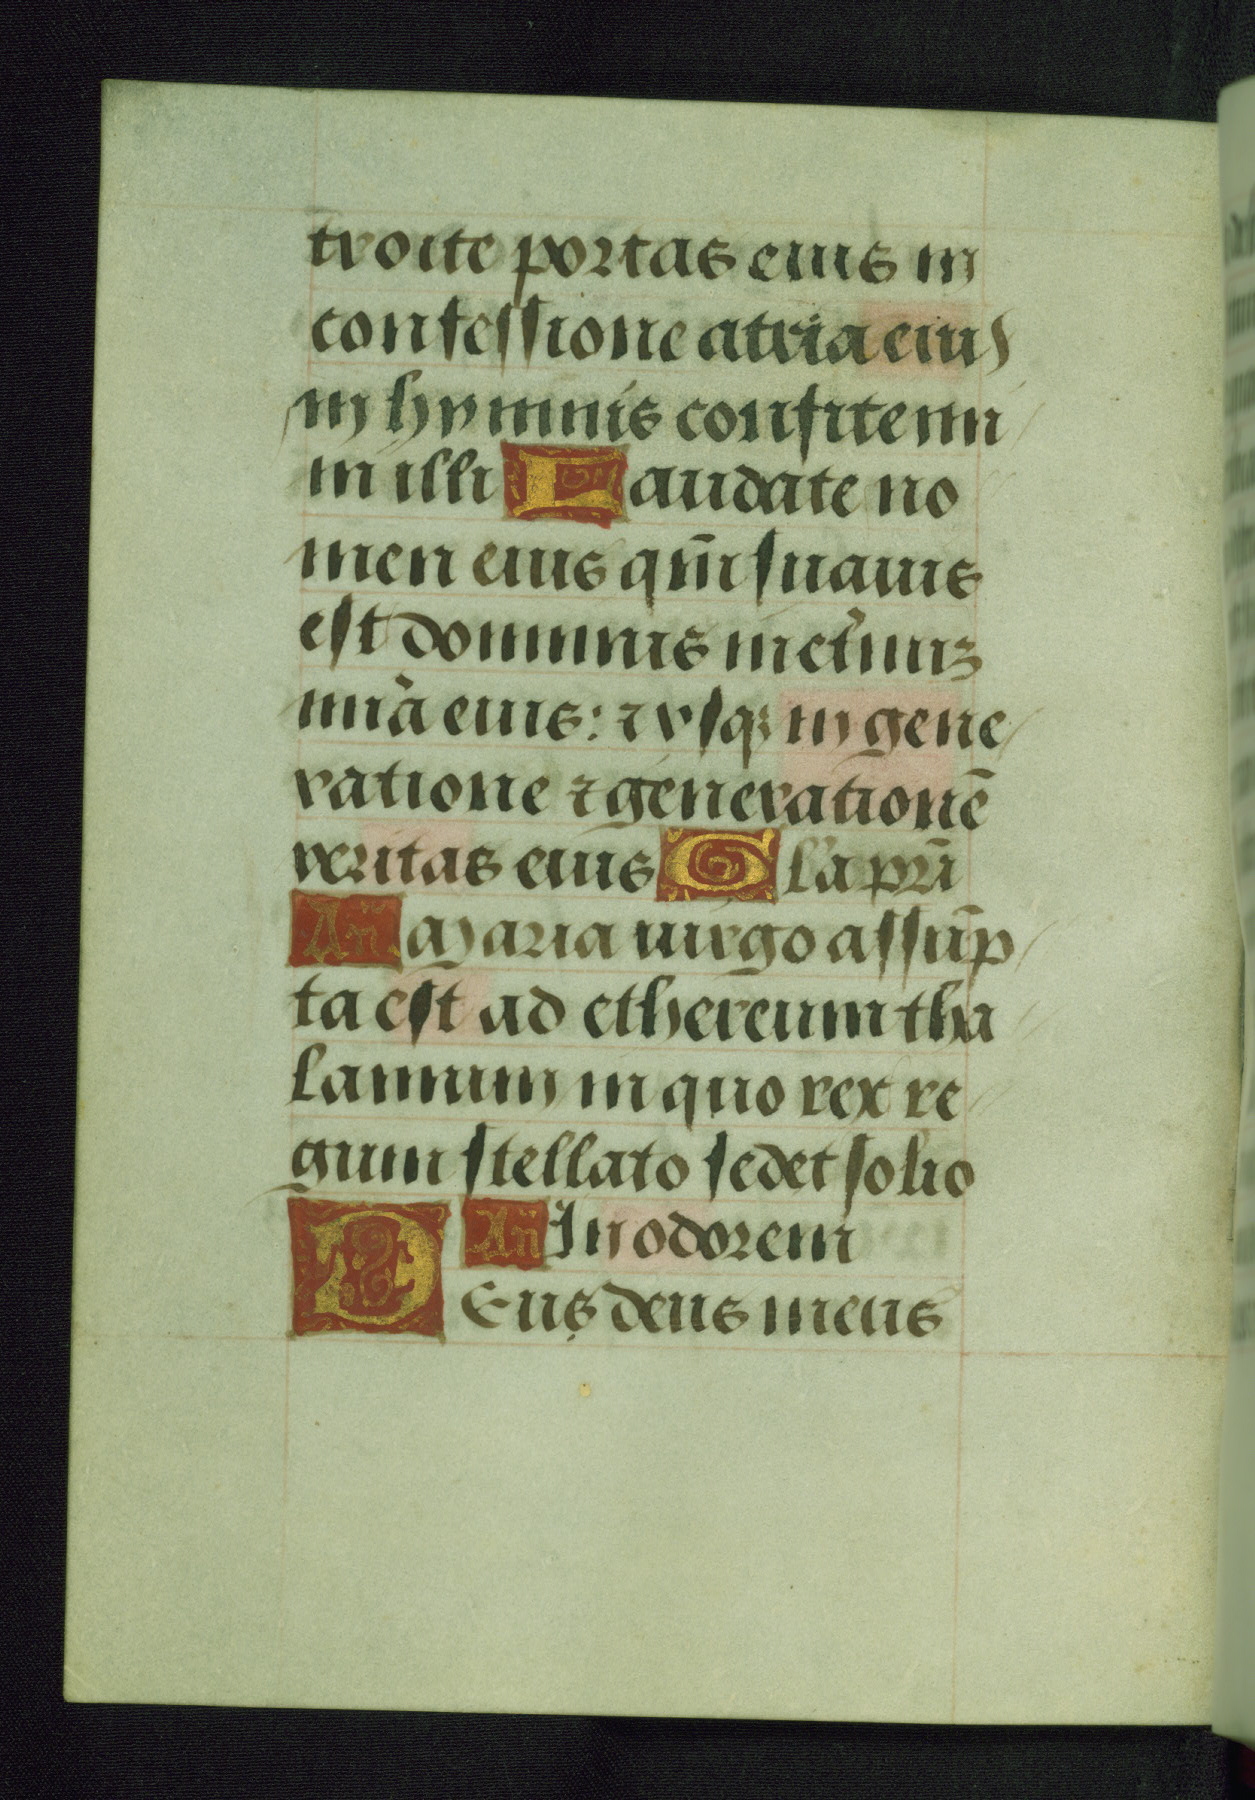 troite portas eius in
confessione atria eius
in hymnis confitemi
in illi Laudate no
men eius qm̄ suauis
est dominus in etnū
mia eius: ⁊ vsq; in gene
ratione ⁊ generationē
veritas eius Gl'a pr̄i
An̄ Maria uirgo assūp
ta est ad ethereum tha
lamum in quo rex re
gum stellato sedet solio
An̄ In odorem
DEus deus meus